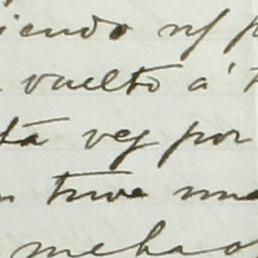 iendo
vuelto á
ta vez por
tuve una
me ha